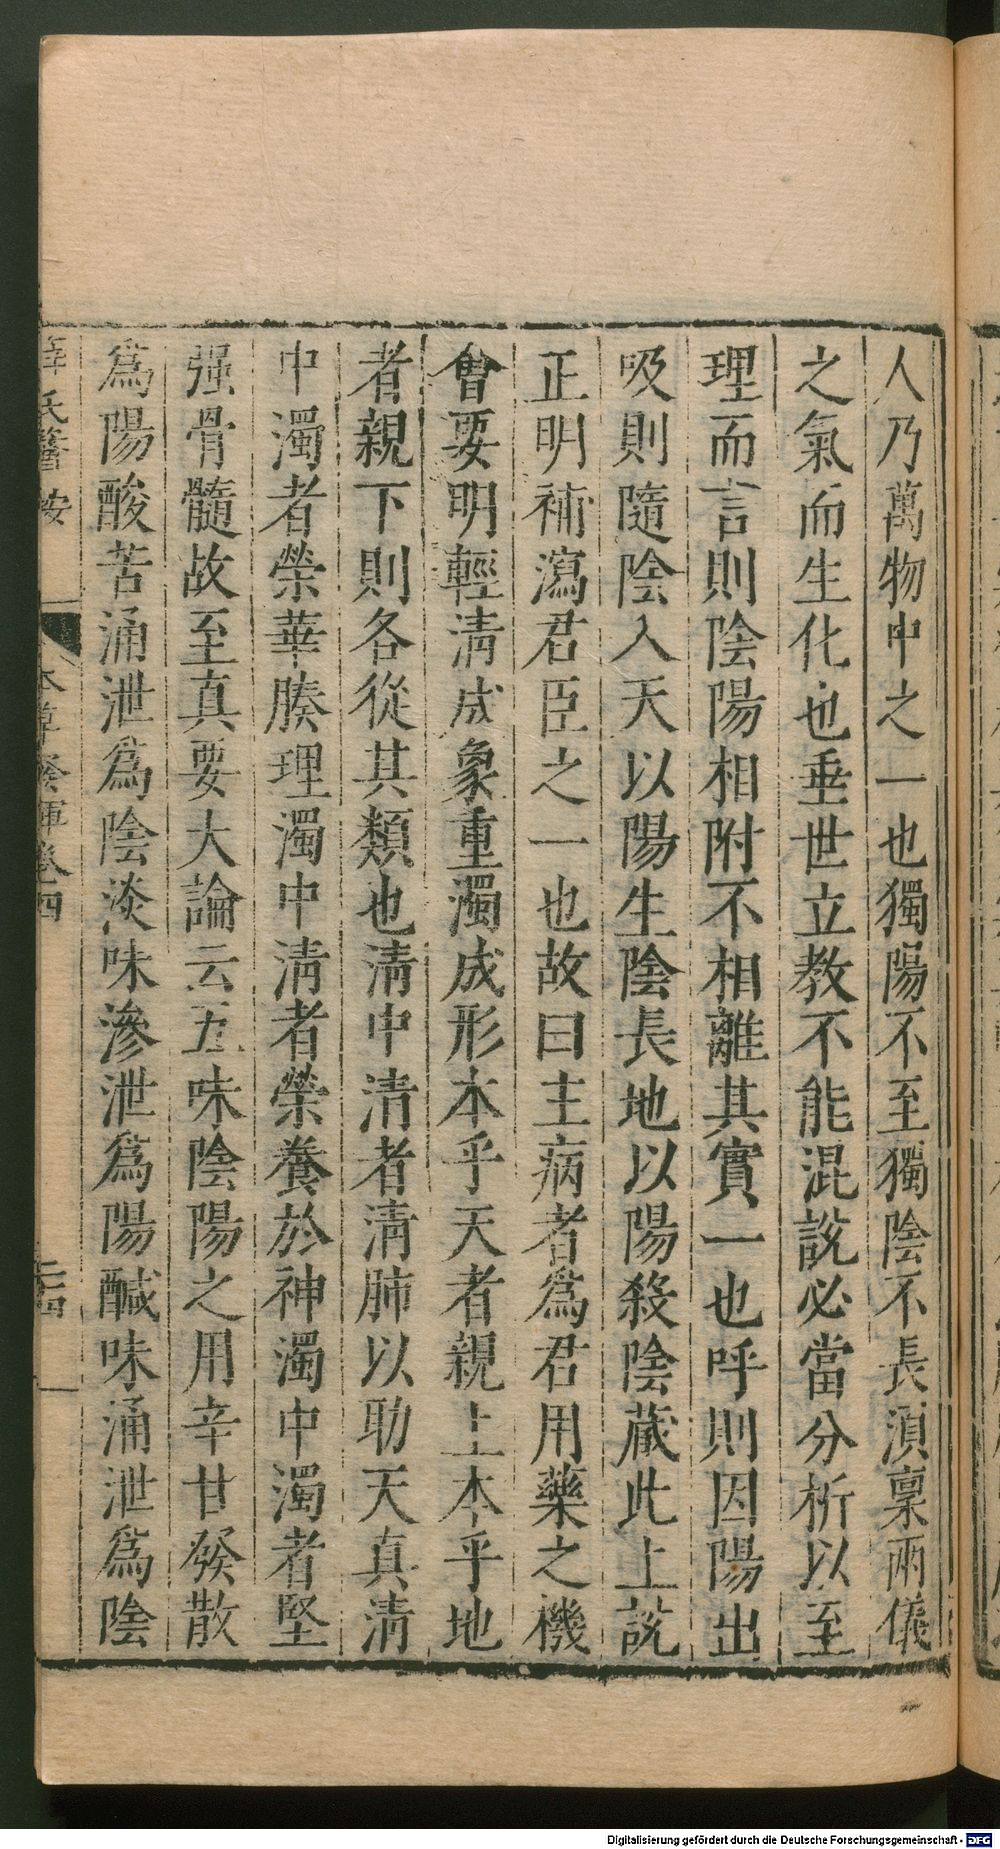 人乃萬物中之一也獨陽不至獨陰不長湏稟兩儀
之氣而生化也垂世立教不能混說必當分析以至
理而言則陰陽相附不相離其實一也呼則因陽出
吸則隨陰入天以陽生陰長地以陽殺陰藏此上説
正明補瀉君臣之一也故曰主病者爲君用藥之機
會要明輕清成象重濁成形本乎天者親上本乎地
者親下則各從其類也清中清者清肺以助天真清
中濁者榮華腠理濁中清者榮養於神濁中濁者堅
强骨髓故至真要大論云五味陰陽之用辛甘發散
爲陽酸苦涌泄爲陰淡味滲泄爲陽鹹味涌泄爲陰
薛氏醫按 本草發揮卷四 二十四
Digitalisierung gefördert durch die Deutsche Forschungsgemeinschaft - DFG